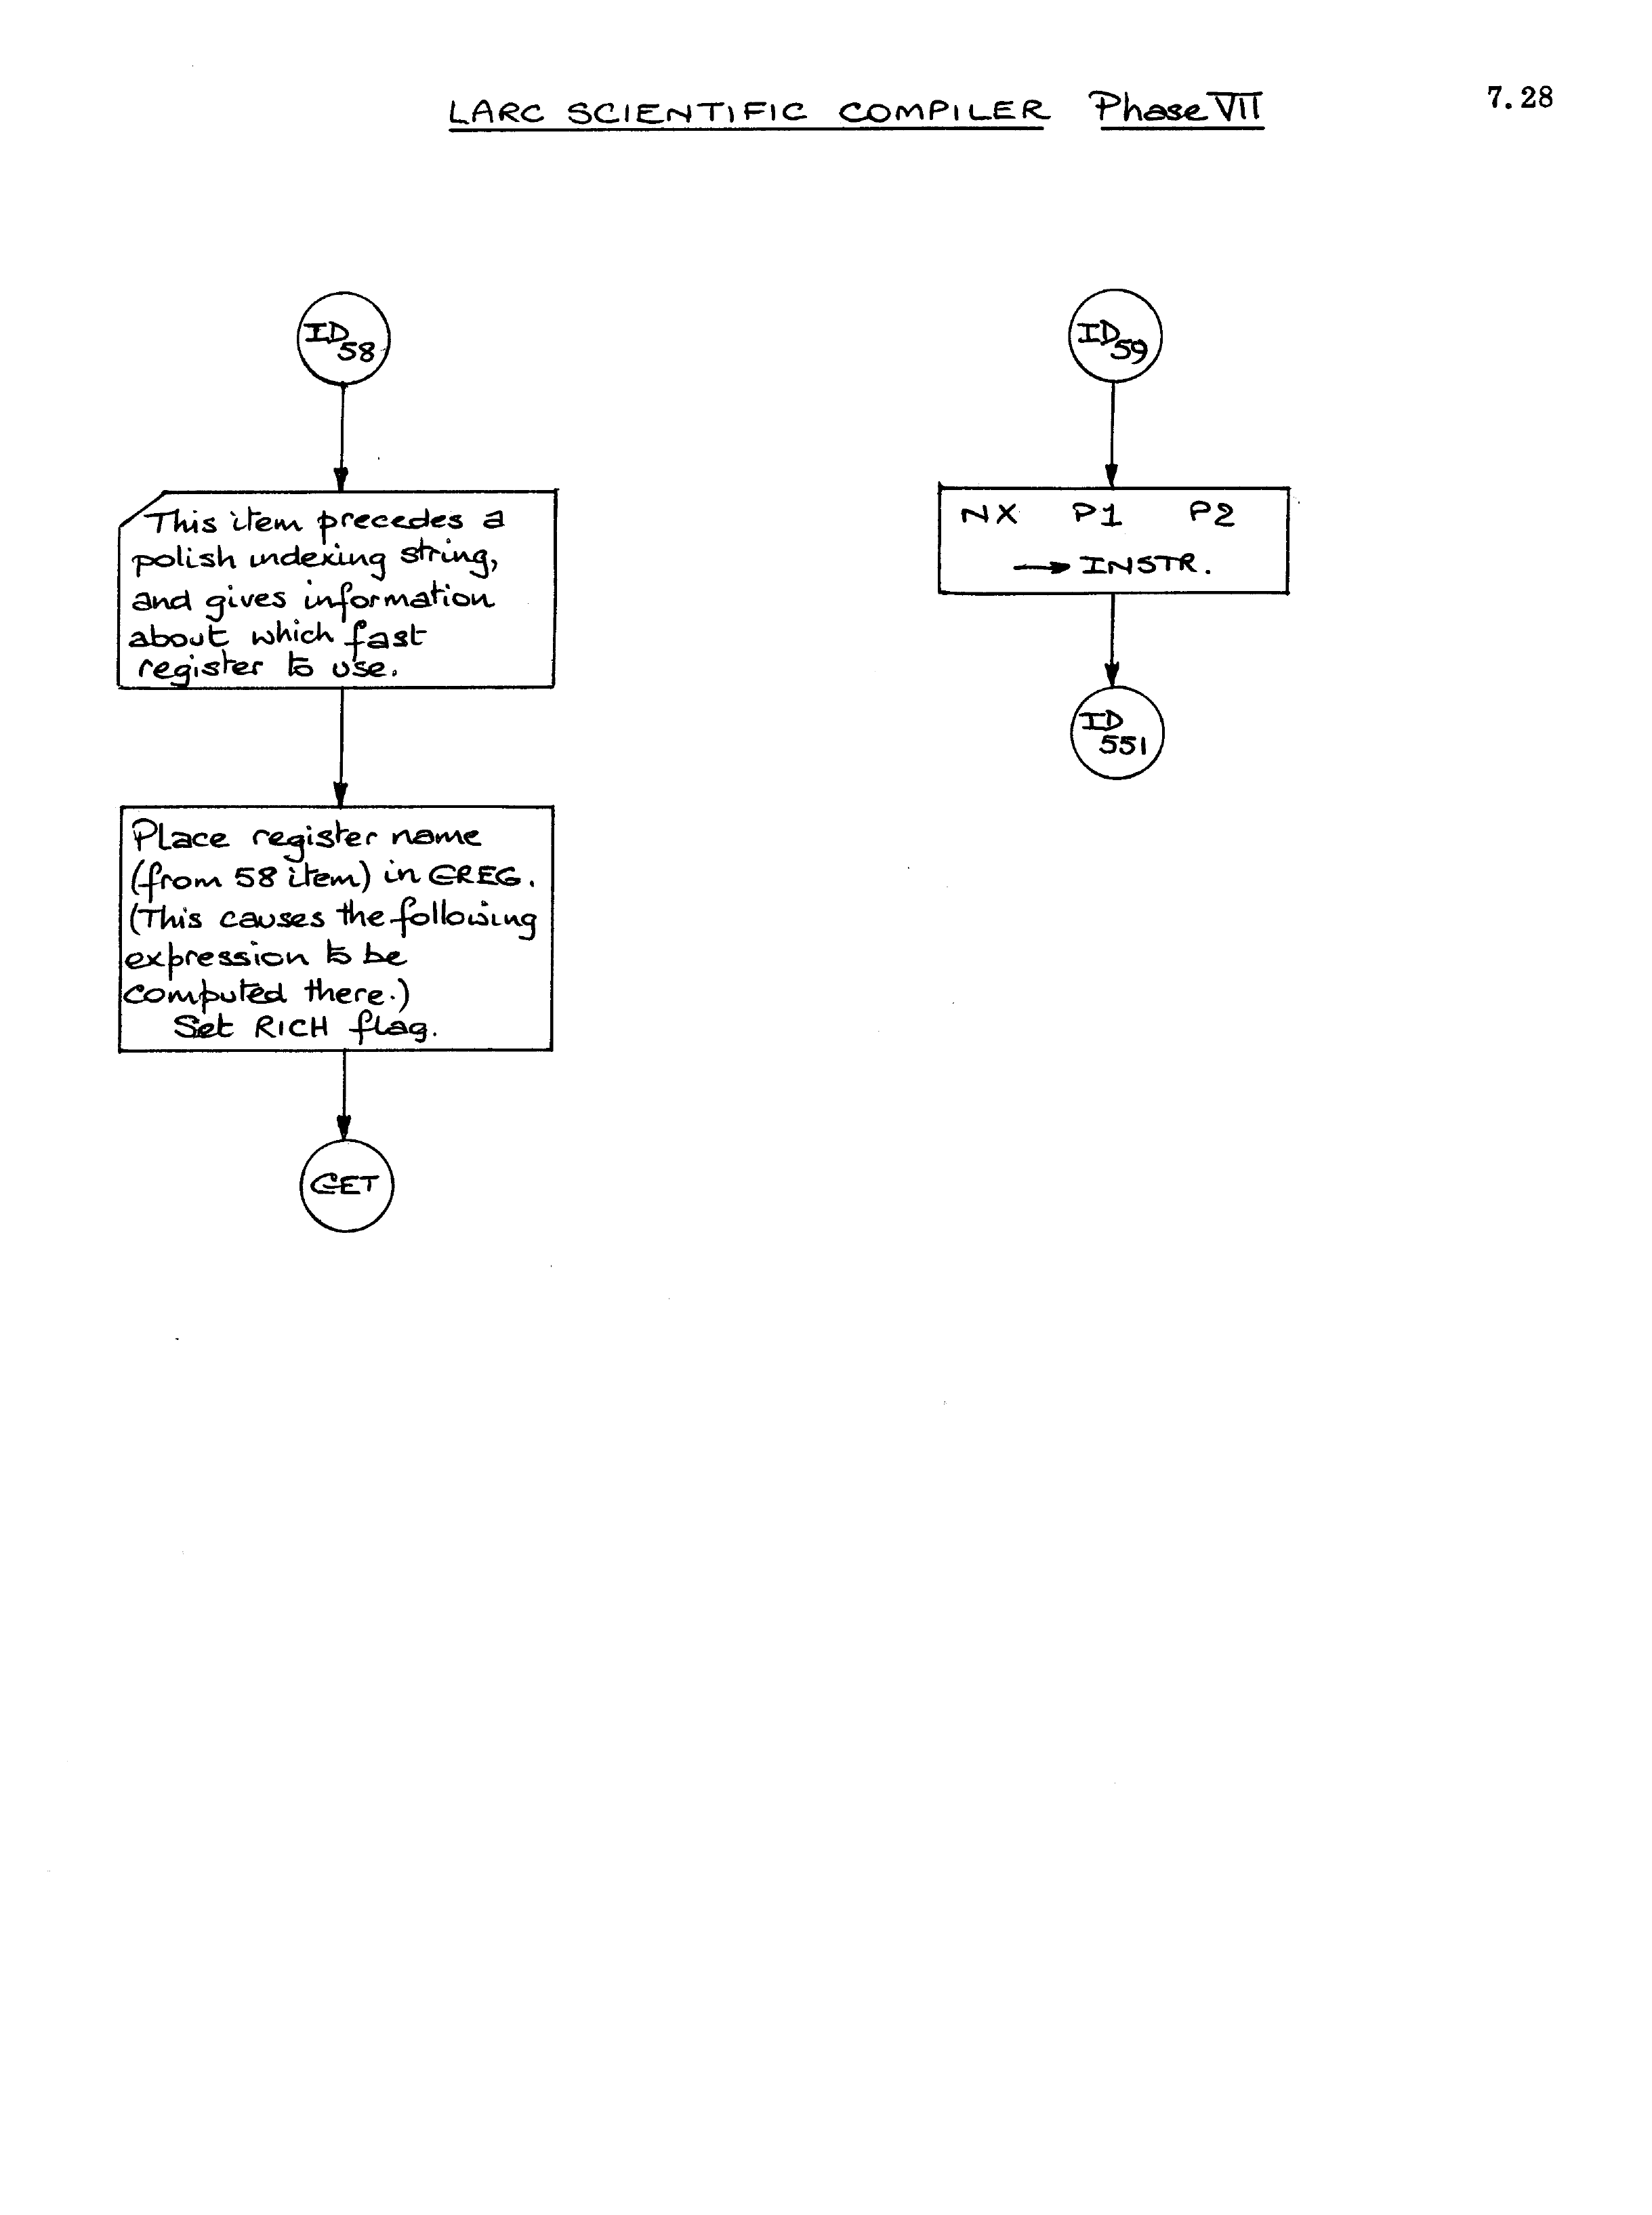 LARC SCIENTIFIC COMPILER Phase VII
7.28
ID
58
This item precedes a
polish indexing string,
and gives information
about which fast
register to use.
Place register name
(from 58 item) in GREG.
(This causes the following
expression to be
computed there.)
Set RICH flag.
GET
ID
59
NX P1 P2
→ INSTR.
ID
551